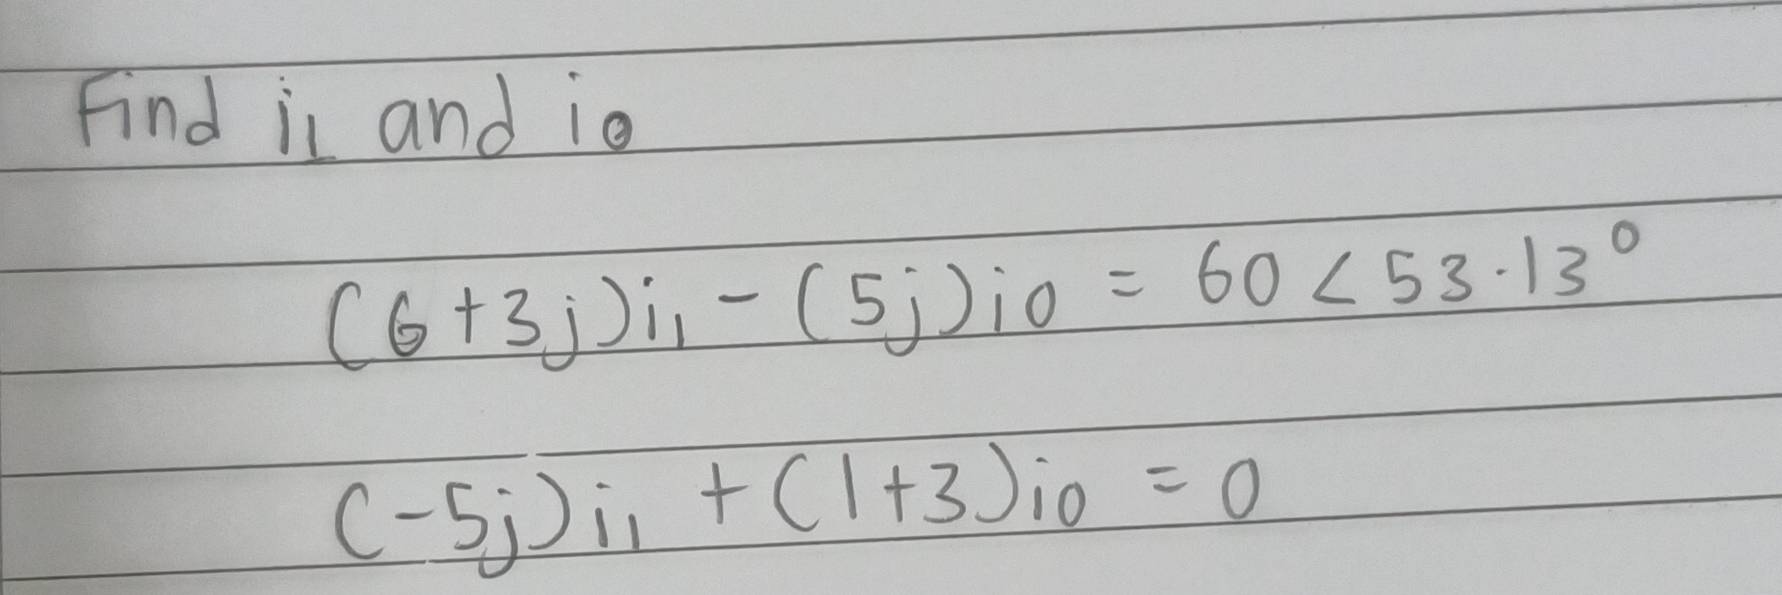 Find i1 and i0
(6+3j)i1 - (5j)i0 = 60 < 53.13°
(-5j)i1 + (1+3)i0 = 0